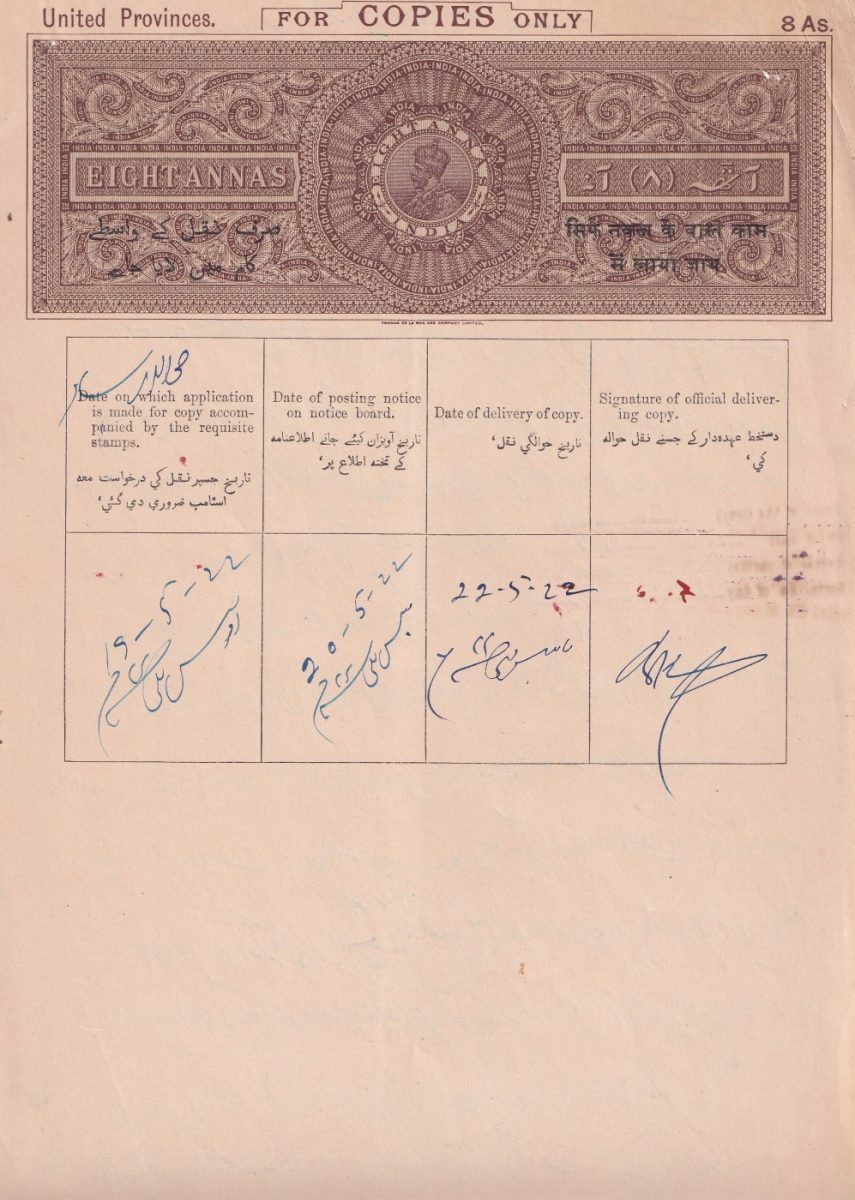 United Provinces.
FOR COPIES ONLY
8 As.
EIGHT ANNAS
EIGHT ANNAS
INDIA
آٹھہ (۸) آنہ
صرف نقل کے واسطے
کام میں لایا جاۓ
सिर्फ नकल के वास्ते काम
में लाया जाय
THOMAS DE LA RUE AND COMPANY LIMITED.
Date on which application
is made for copy accom-
panied by the requisite
stamps.
تاريخ جسپر نقل کی درخواست معہ
اسٹامپ ضروري دي گئي،
Date of posting notice
on notice board.
تاريخ آويزان کيئے جانے اطلاعنامہ
کے تختہ اطلاع پر،
Date of delivery of copy.
تاريخ حوالگي نقل،
Signature of official deliver-
ing copy.
دستخط عہدہدار کے جسنے نقل حوالہ
کي،
19-5-22
20-5-22
22-5-22